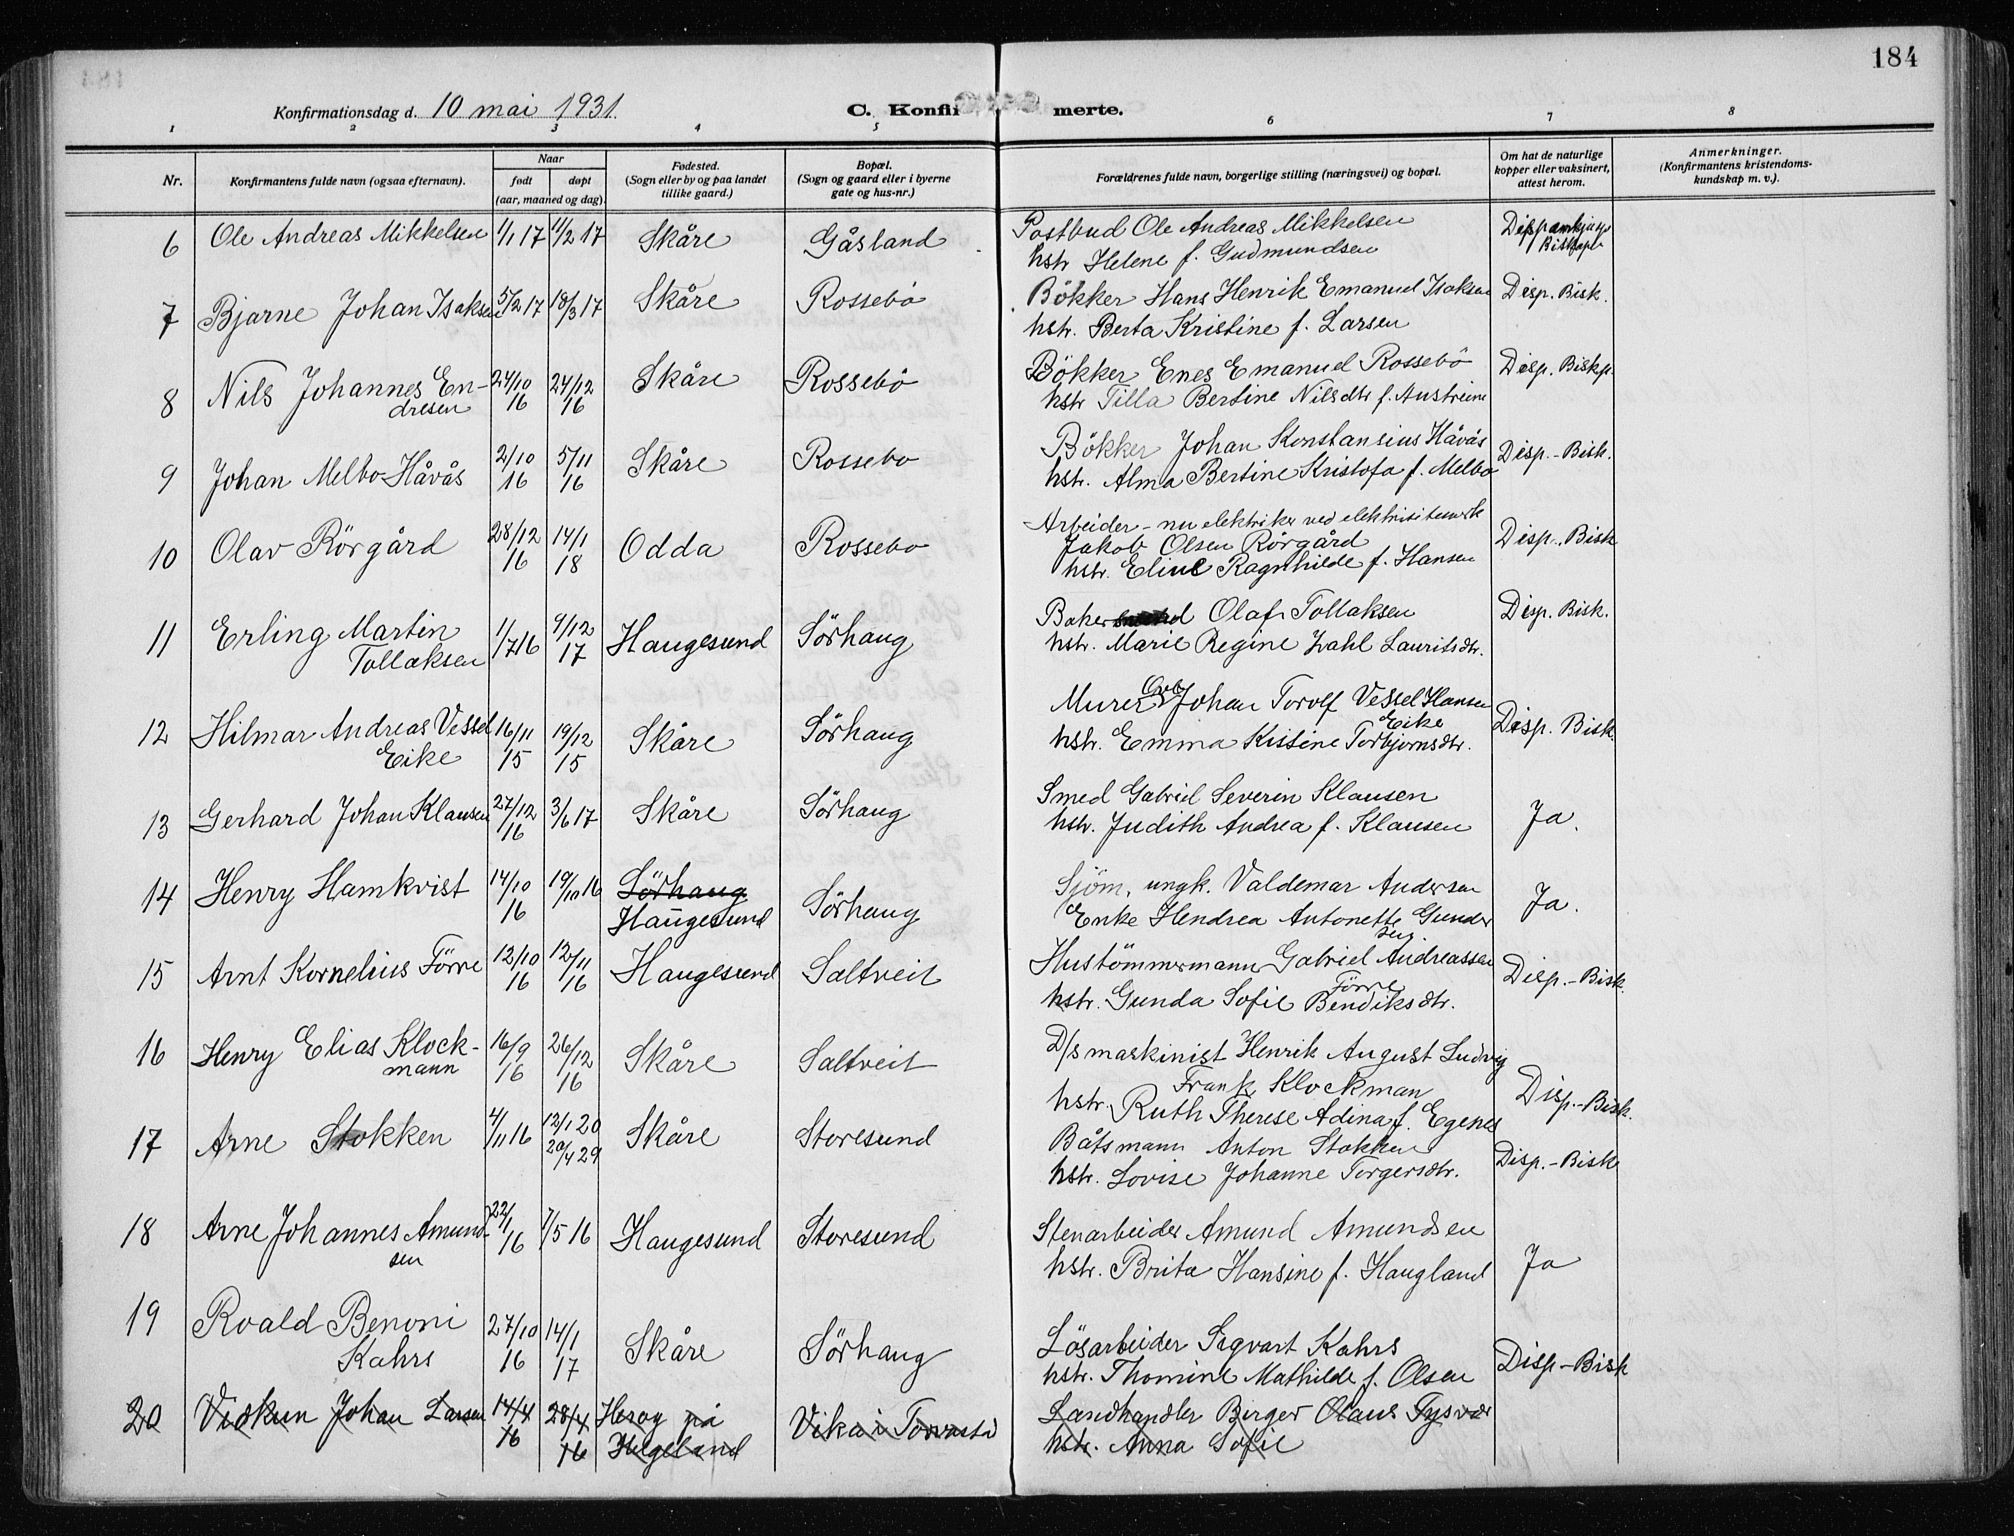 184
Konfirmationsdag d. 10 mai 1931.
C. Konfirmerte.
1 2 3 4 5 6 7 8
Nr.
Konfirmantens fulde navn (ogsaa efternavn).
Naar
født døpt
(aar, maaned og dag).
Fødested.
(Sogn eller by og paa landet
tillike gaard.)
Bopæl.
(Sogn og gaard eller i byerne
gate og hus-nr.)
Forældrenes fulde navn, borgerlige stilling (næringsvei) og bopæl.
Om hat de naturlige
kopper eller vaksinert,
attest herom.
Anmerkninger.
(Konfirmantens kristendoms-
kundskap m. v.).
6 Ole Andreas Mikkelsen 1/1 17 11/2 17 Skåre Gåsland Postbud Ole Andreas Mikkelsen
hstr Helene f. Gudmundsen
7 Bjarne Johan Isaksen 5/2 17 18/3 17 Skåre Rossebö Bökker Hans Henrik Emanuel Isaksen Disp. Bisk.
hstr. Berta Kristine f. Larsen
8 Nils Johannes En- 24/10 24/12 Skåre Rossebö Bökker Enes Emanuel Rossebö Disp. Biskp.
dresen 16 16 hstr Tilla Bertine Nilsdtr f. Austreim
9 Johan Melbo Håvås 2/10 16 5/11 16 Skåre Rossebo Bökker Johan Konstansius Håvås Disp.-Bisk.
hstr. Alma Bertine Kristofa f. Melbo
10 Olav Rörgård 28/12 16 14/1 18 Odda Rossebo Arbeider - nu elektriker ved elektrisitetsverk Disp.. Bisk
Jakob Olsen Rörgård
hstr. Eline Ragnhilde f. Hansen
11 Erling Martin 1/7 16 9/12 17 Haugesund Sörhaug Baker Olaf Tollaksen Disp. Bisk.
Tollaksen hstr. Marie Regine Lauritsdtr.
12 Hilmar Andreas Vessel 16/11 15 19/12 15 Skåre Sörhaug Murer Johan Torolf Vessel Hansen Disp. Bisk.
Eike Eike
hstr. Emma Kistine Torbjornsdtr.
13 Gerhard Johan Klausen 27/12 16 3/6 17 Skåre Sörhaug Smed Gabriel Severin Klausen Ja.
hstr. Judith Andrea f. Klausen
14 Henry Hamkvist 14/10 16 19/10 16 Sörhaug Sörhaug Sjöm. ungk. Valdemar Andersen Ja.
Haugesund Enke Hendrea Antonette Gunder
sen
15 Arnt Kornelius Förre 12/10 16 12/11 16 Haugesund Saltveit Hustömmermann Gabriel Andreassen Disp.-Bisk.
Förre
hstr. Gunda Sofie Bendiksdtr.
16 Henry Elias Klock- 16/9 16 26/12 16 Skåre Saltveit D/s maskinist Henrik August Ludvig Disp.-Bisk.
mann Frank Klockman
hstr. Ruth Therese Adina f. Egenes
17 Arne Stokken 4/11 16 12/1 20 Skåre Storesund Båtsmann Anton Stokken Disp.-Bisk
20/4 29 hstr. Lovise Johanne Torgersdtr.
18 Arne Johannes Amund- 22/1 16 7/5 16 Haugesund Storesund Stenarbeider Amund Amundsen Ja
sen hstr. Brita Hansine f. Haugland
19 Roald Benoni 27/10 16 14/1 17 Skåre Sörhaug Lösarbeider Sigvart Kahrs Disp-Bisk
Kahrs hstr. Thomine Mathilde f. Olsen
20 Vidkun Johan Larsen 14/4 16 28/4 16 Heröy på Vika i Torvastd Landhandler Birger Olaus Tysvær
Helgeland hstr. Anna Sofie